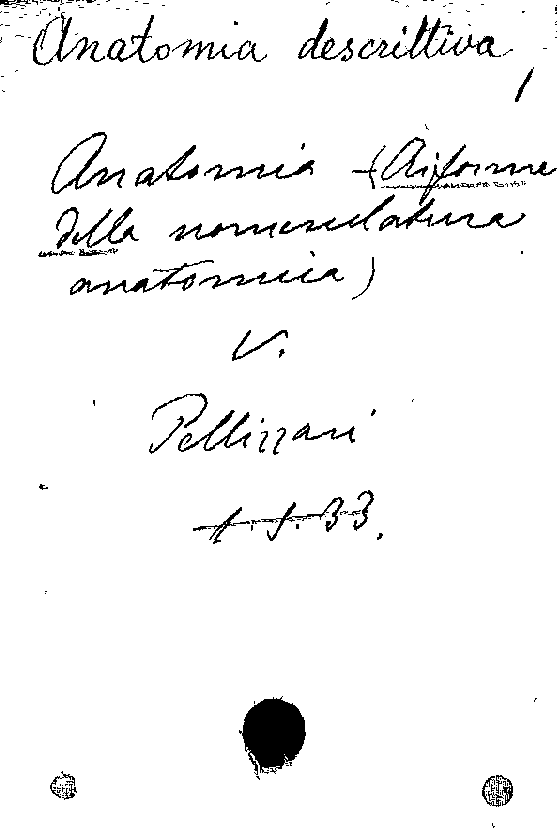 Anatomia descrittiva
Anatomia - (Riforme
della nomenclatura
anatomica)
V.
Pellizzari
1. J. 33.